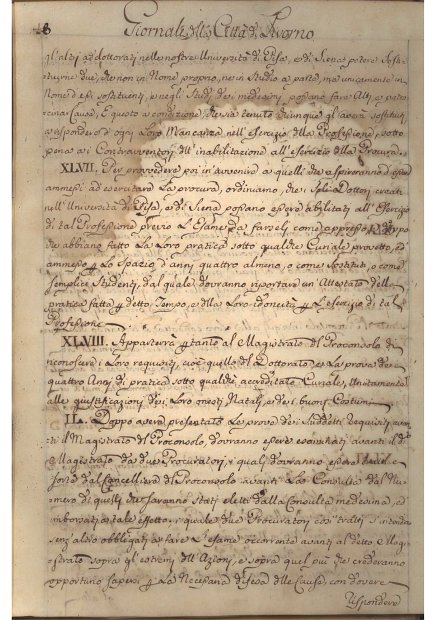 48 Giornale della Città di Livorno
gl'altri addottorati nelle nostre Università di Pisa, e di Siena potere sosti-
tuirne due, che non in Nome proprio, ne in Studio a parte, ma unicamente in
Nome de essi sostituenti, e negli Studj dei medesimi possano fare Atti, e patro-
cinar Cause, E questo a condizione, che sia tenuto chiunque gl'averà sostituti
a rispondere d'ogni Loro Mancanza nell'esercizio della Professione, sotto
pena a i Contravventori dell'inabilitazione all'esercizio della Procura.
XLVII. Per provvedere poi in avvenire a quelli che aspireranno d'essere
ammessi ad esercitare La procura, ordiniamo, che i soli Dottori creati
nell'Università di Pisa, e di Siena possano essere abilitati all'Esercizio
di tal Professione previo L'Esame da farsi come appresso, e Doppo
che abbiano fatto La Loro pratica sotto qualche Curiale provetto, ed
ammesso p Lo Spazio d'anni quattro almeno, o come Sostituti, o come
semplici Studenti, dal quale dovranno riportare un Attestato della
pratica fatta p detto Tempo, e della Loro idoneità p L'esercizio di tal
Professione
XLVIII. Apparterrà p tanto al Magistrato del Proconsolo di
riconoscere i Loro requisiti, cioè quello del Dottorato, e Le prove dei
quattro Anni di pratica sotto qualche accreditato Curiale, Unitamente
alle giustificazioni dei Loro onesti Natali, e dei buoni Costumi
IL. Doppo avere presentate Le prove dei suddetti Requisiti avan-
ti il Magistrato del Proconsolo, dovranno essere esaminati avanti il do
Magistrato da due Procuratori, i quali dovranno essere tratti a
sorte dal Cancelliere del Proconsolo avanti La do Consulta dal Nu-
mero di quelli che saranno stati eletti dalla Consulta medesima, ed
imborsati a tale effetto, i quali due Procuratori così tratti s'intenda-
senz'altro obbligati a fare L'esame occorrente avanti al detto Magi-
strato sopra gl'estremi dell'Azioni, e sopra quel più che crederanno
opportuno sapersi p La Necessaria difesa delle Cause, con dovere
rispondere